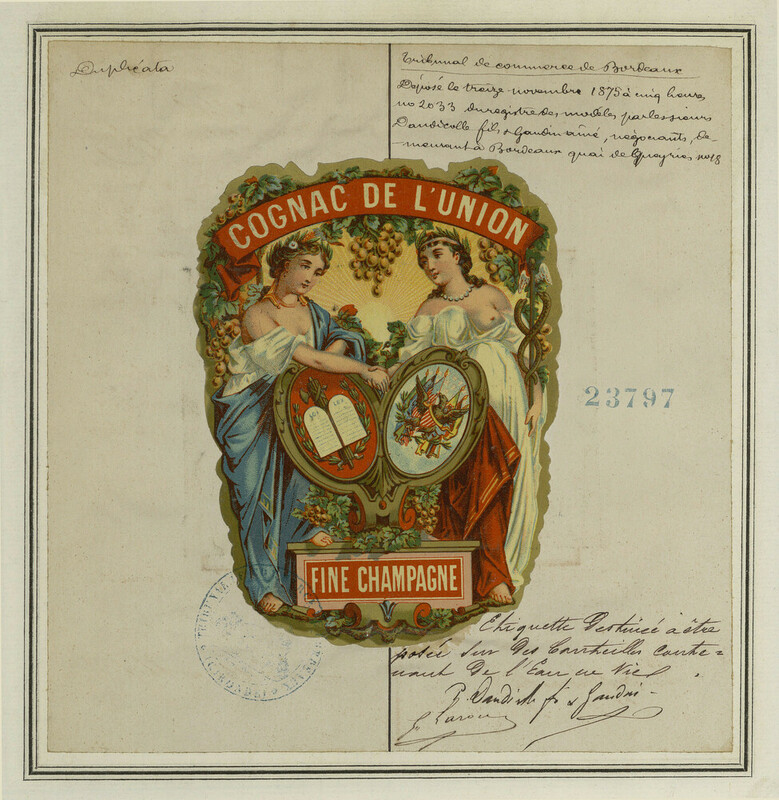 Duplicata
Tribunal de commerce de Bordeaux
Déposé le treize novembre 1875 à cinq heures
no 2033 du registre des modèles par les sieurs
Dandicolle fils & Gaudin ainé, négociants, de-
meurant à Bordeaux quai de Queyries no 18
COGNAC DE L'UNION
23797
FINE CHAMPAGNE
Etiquette Destinée à être
posée sur Des Bouteilles conte=
nant De l'Eau de Vie
Dandicolle fs & Gaudin